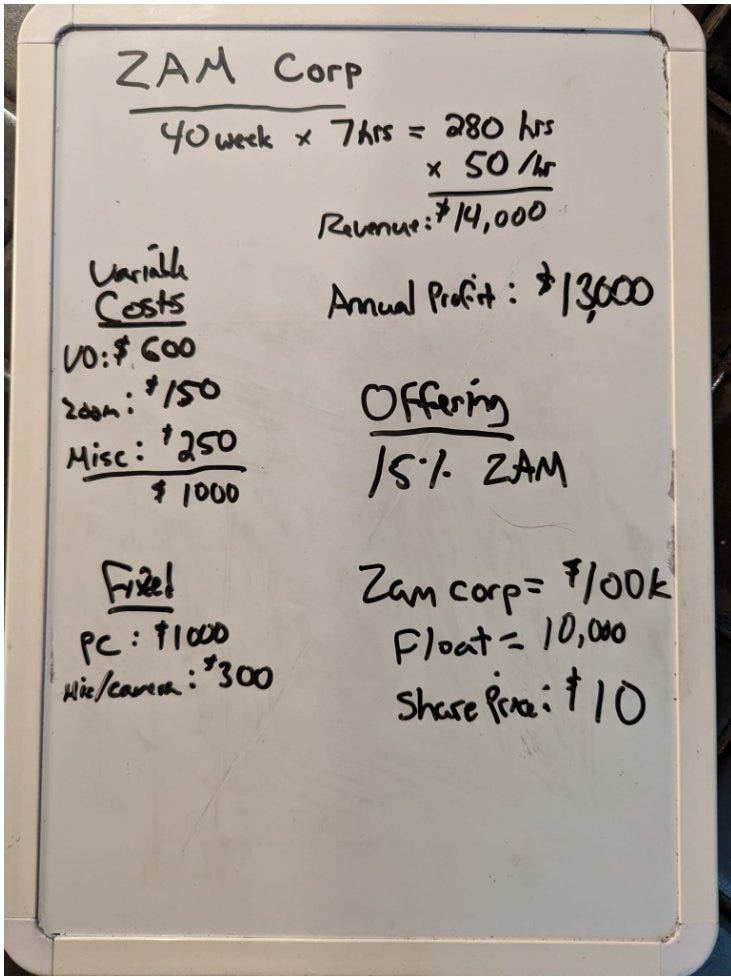 ZAM Corp
40 week x 7 hrs = 280 hrs
x 50 /hr
Revenue: $14,000
Variable
Costs
VO: $600
Zoom: $150
Misc: $250
$1000
Annual Profit: $13,000
Offering
15% ZAM
Fixed
PC: $1000
Mic/camera: $300
Zam corp = $100k
Float = 10,000
Share Price: $10